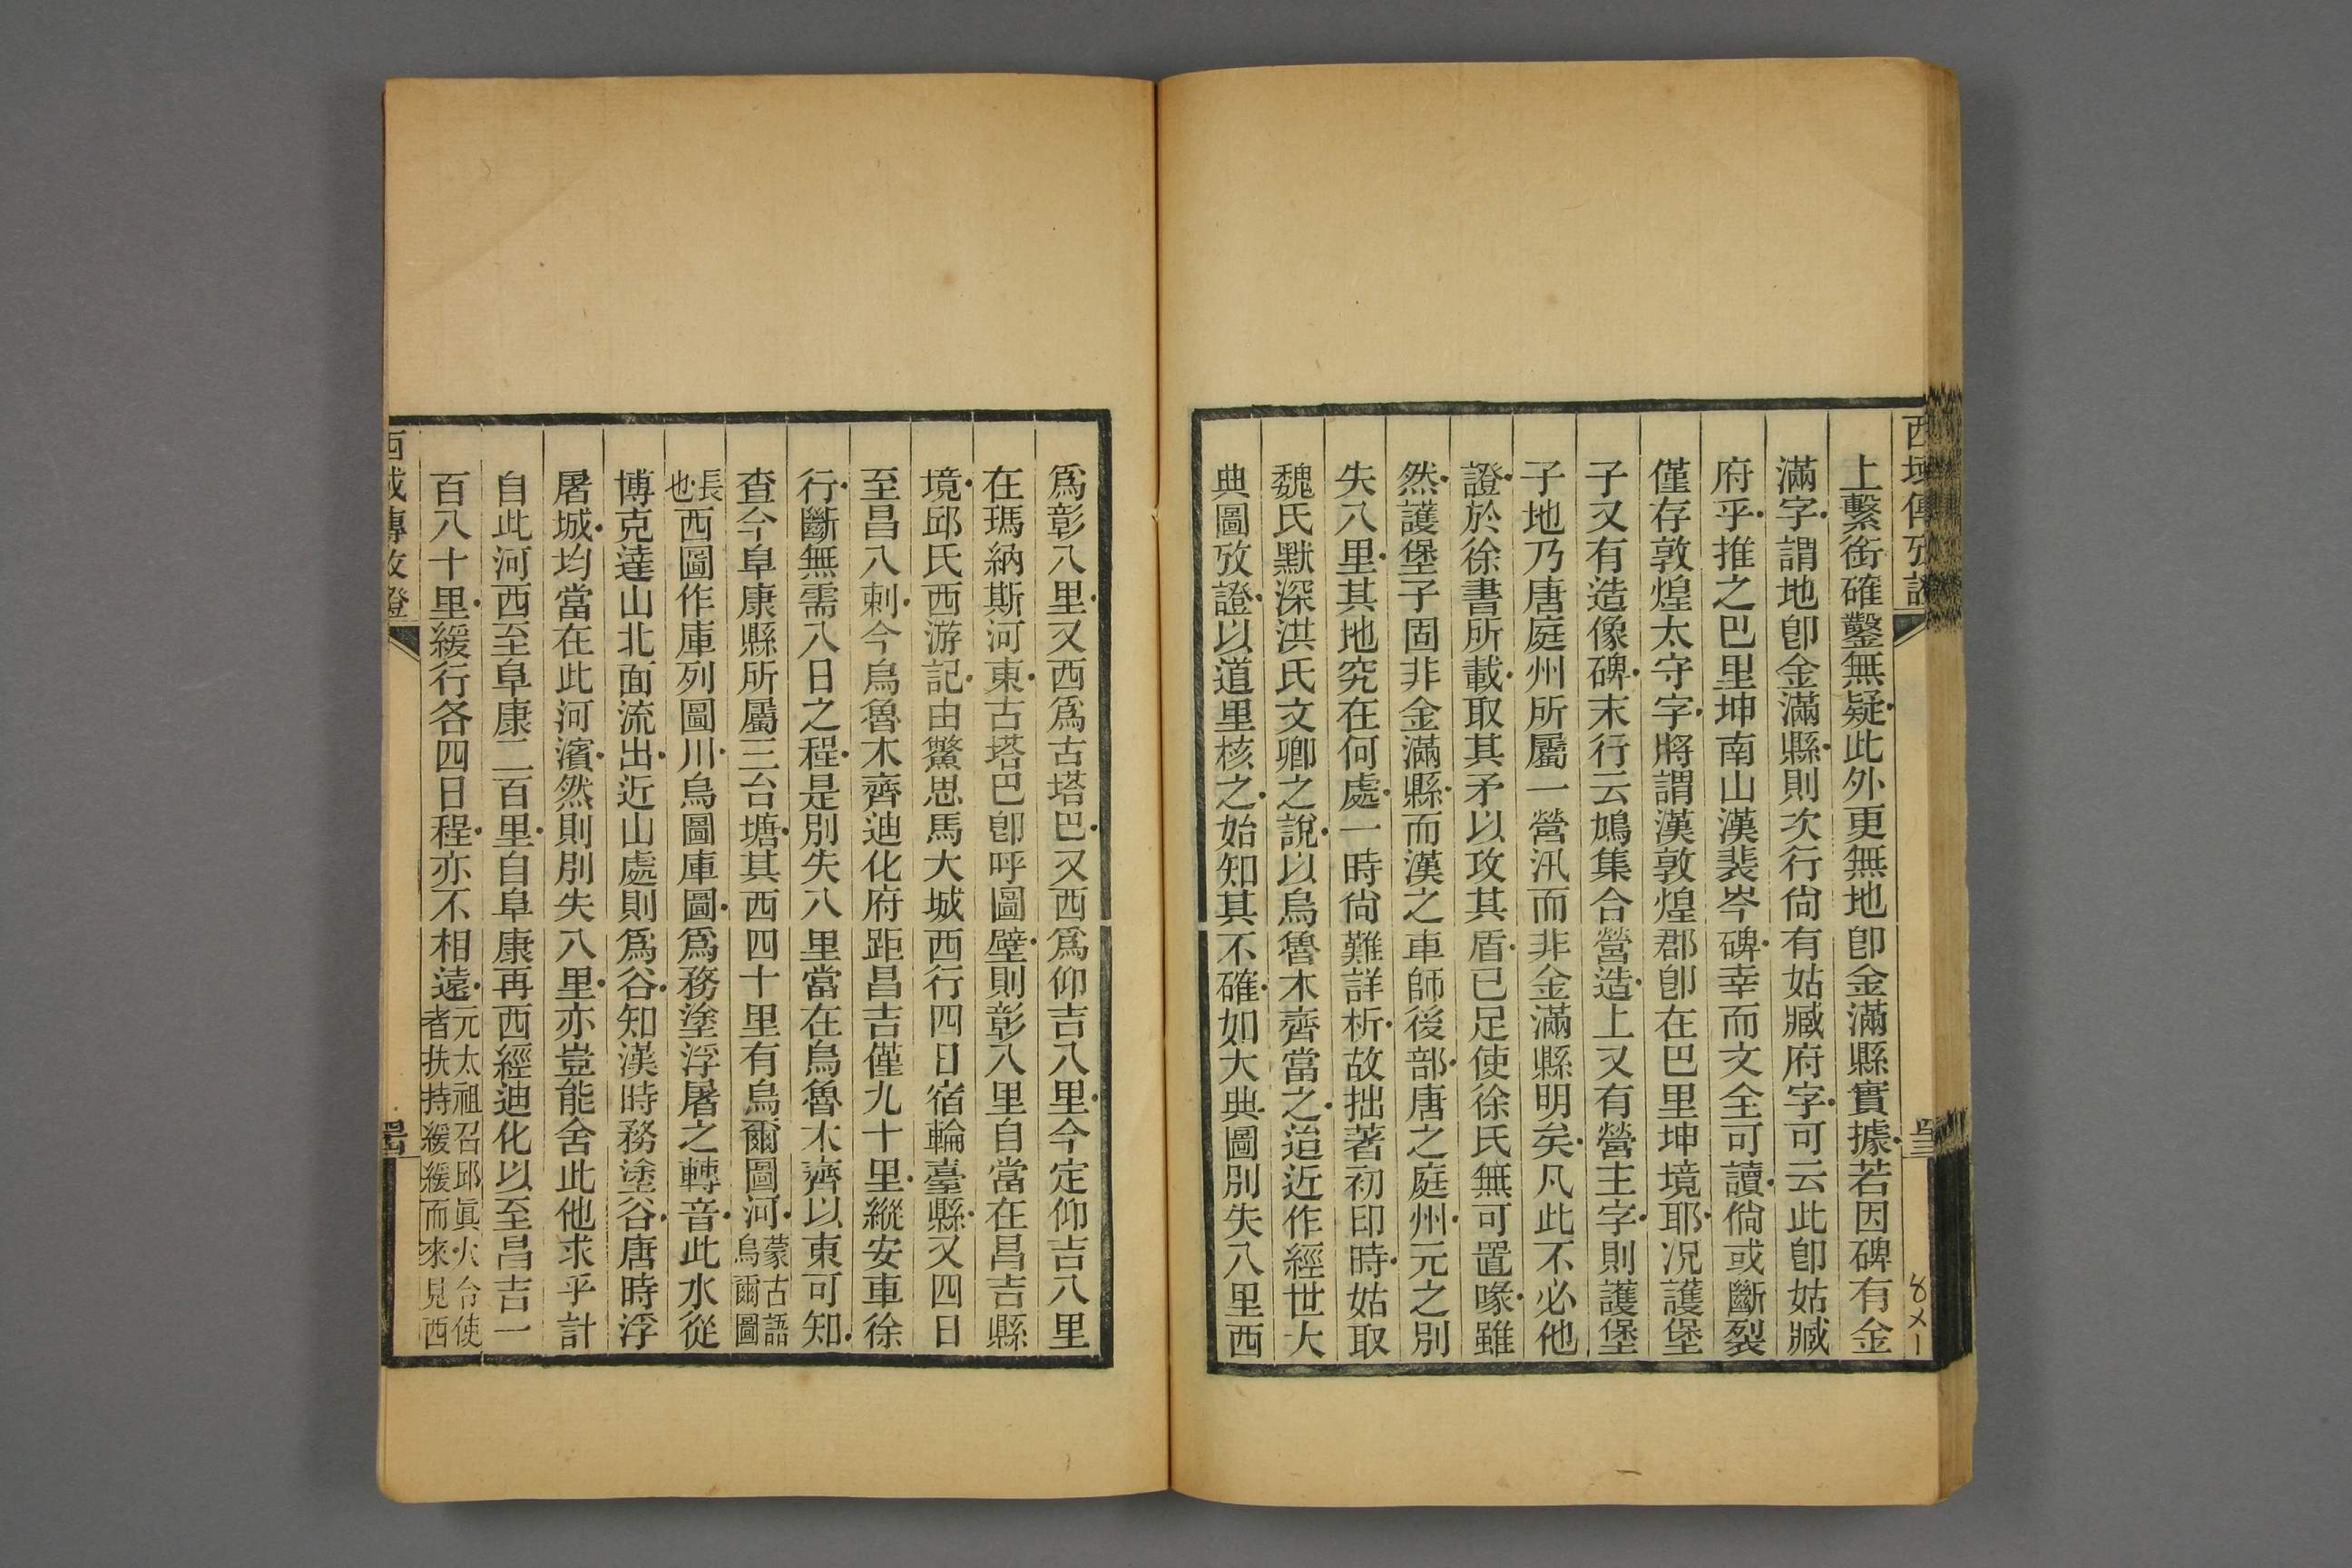 西域傳攷證
上繫銜確鑿無疑此外更無地卽金滿縣實據若因碑有金
滿字謂地卽金滿縣則次行尙有姑臧府字可云此卽姑臧
府乎推之巴里坤南山漢裴岑碑幸而文全可讀倘或斷裂
僅存敦煌太守字將謂漢敦煌郡卽在巴里坤境耶況護堡
子又有造像碑末行云鳩集合營造上又有營主字則護堡
子地乃唐庭州所屬一營汛而非金滿縣明矣凡此不必他
證於徐書所載取其矛以攻其盾已足使徐氏無可置喙雖
然護堡子固非金滿縣而漢之車師後部唐之庭州元之別
失八里其地究在何處一時尙難詳析故拙著初印時姑取
魏氏默深洪氏文卿之說以烏魯木齊當之迨近作經世大
典圖攷證以道里核之始知其不確如大典圖別失八里西
爲彰八里又西爲古塔巴又西爲仰吉八里今定仰吉八里
在瑪納斯河東古塔巴卽呼圖壁則彰八里自當在昌吉縣
境邱氏西游記由鱉思馬大城西行四日宿輪臺縣又四日
至昌八剌今烏魯木齊迪化府距昌吉僅九十里縱安車徐
行斷無需八日之程是別失八里當在烏魯木齊以東可知
查今阜康縣所屬三台塘其西四十里有烏爾圖河蒙古語烏爾圖
長也西圖作庫列圖川烏圖庫圖爲務塗浮屠之轉音此水從
博克達山北面流出近山處則爲谷知漢時務塗谷唐時浮
屠城均當在此河濱然則別失八里亦豈能舍此他求乎計
自此河西至阜康二百里自阜康再西經迪化以至昌吉一
百八十里緩行各四日程亦不相遠元太祖召邱眞人令使者扶持緩緩而來見西
西域傳攷證